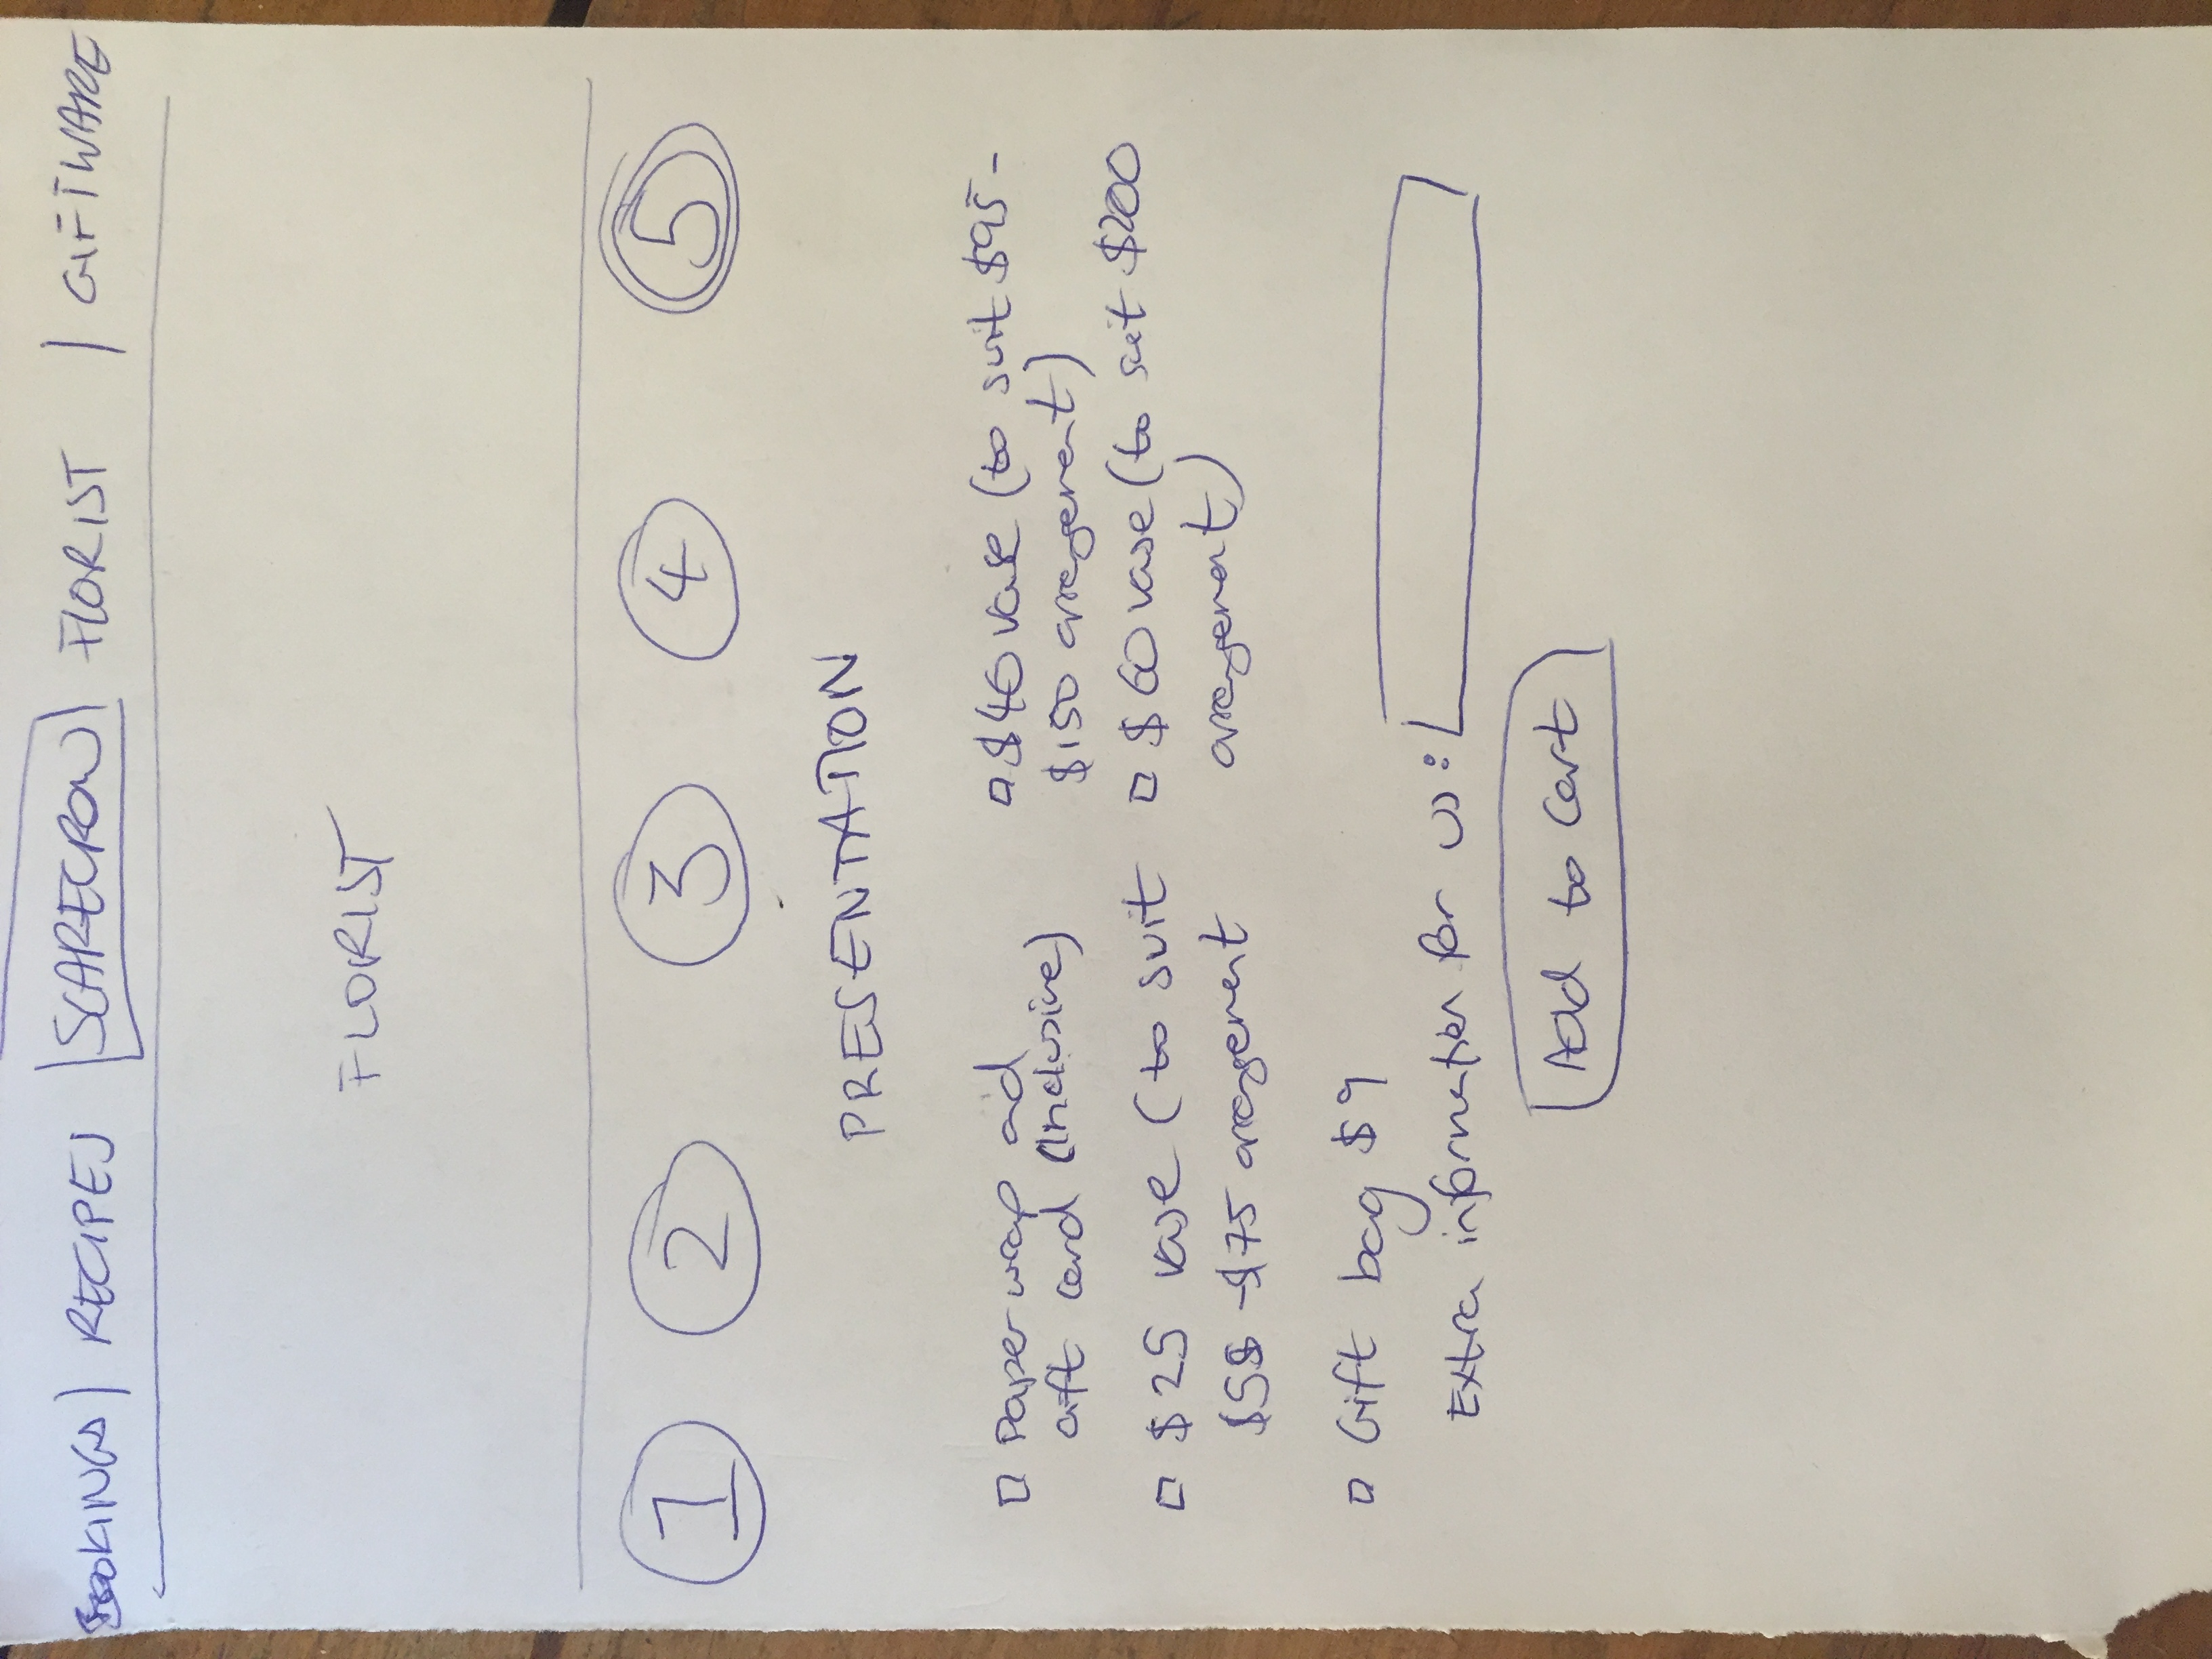 BOOKINGS | RECIPES | SCARECROW | FLORIST | GIFTWARE
FLORIST
1 2 3 4 5
PRESENTATION
Paper wrap and
Gift card (Inclusive)
$25 vase (to suit
-$75 arrangement
Gift bag $9
$40 vase (to suit $95-
$150 arrangement)
$60 vase (to suit $200
arrangement)
Extra information for us:
Add to cart